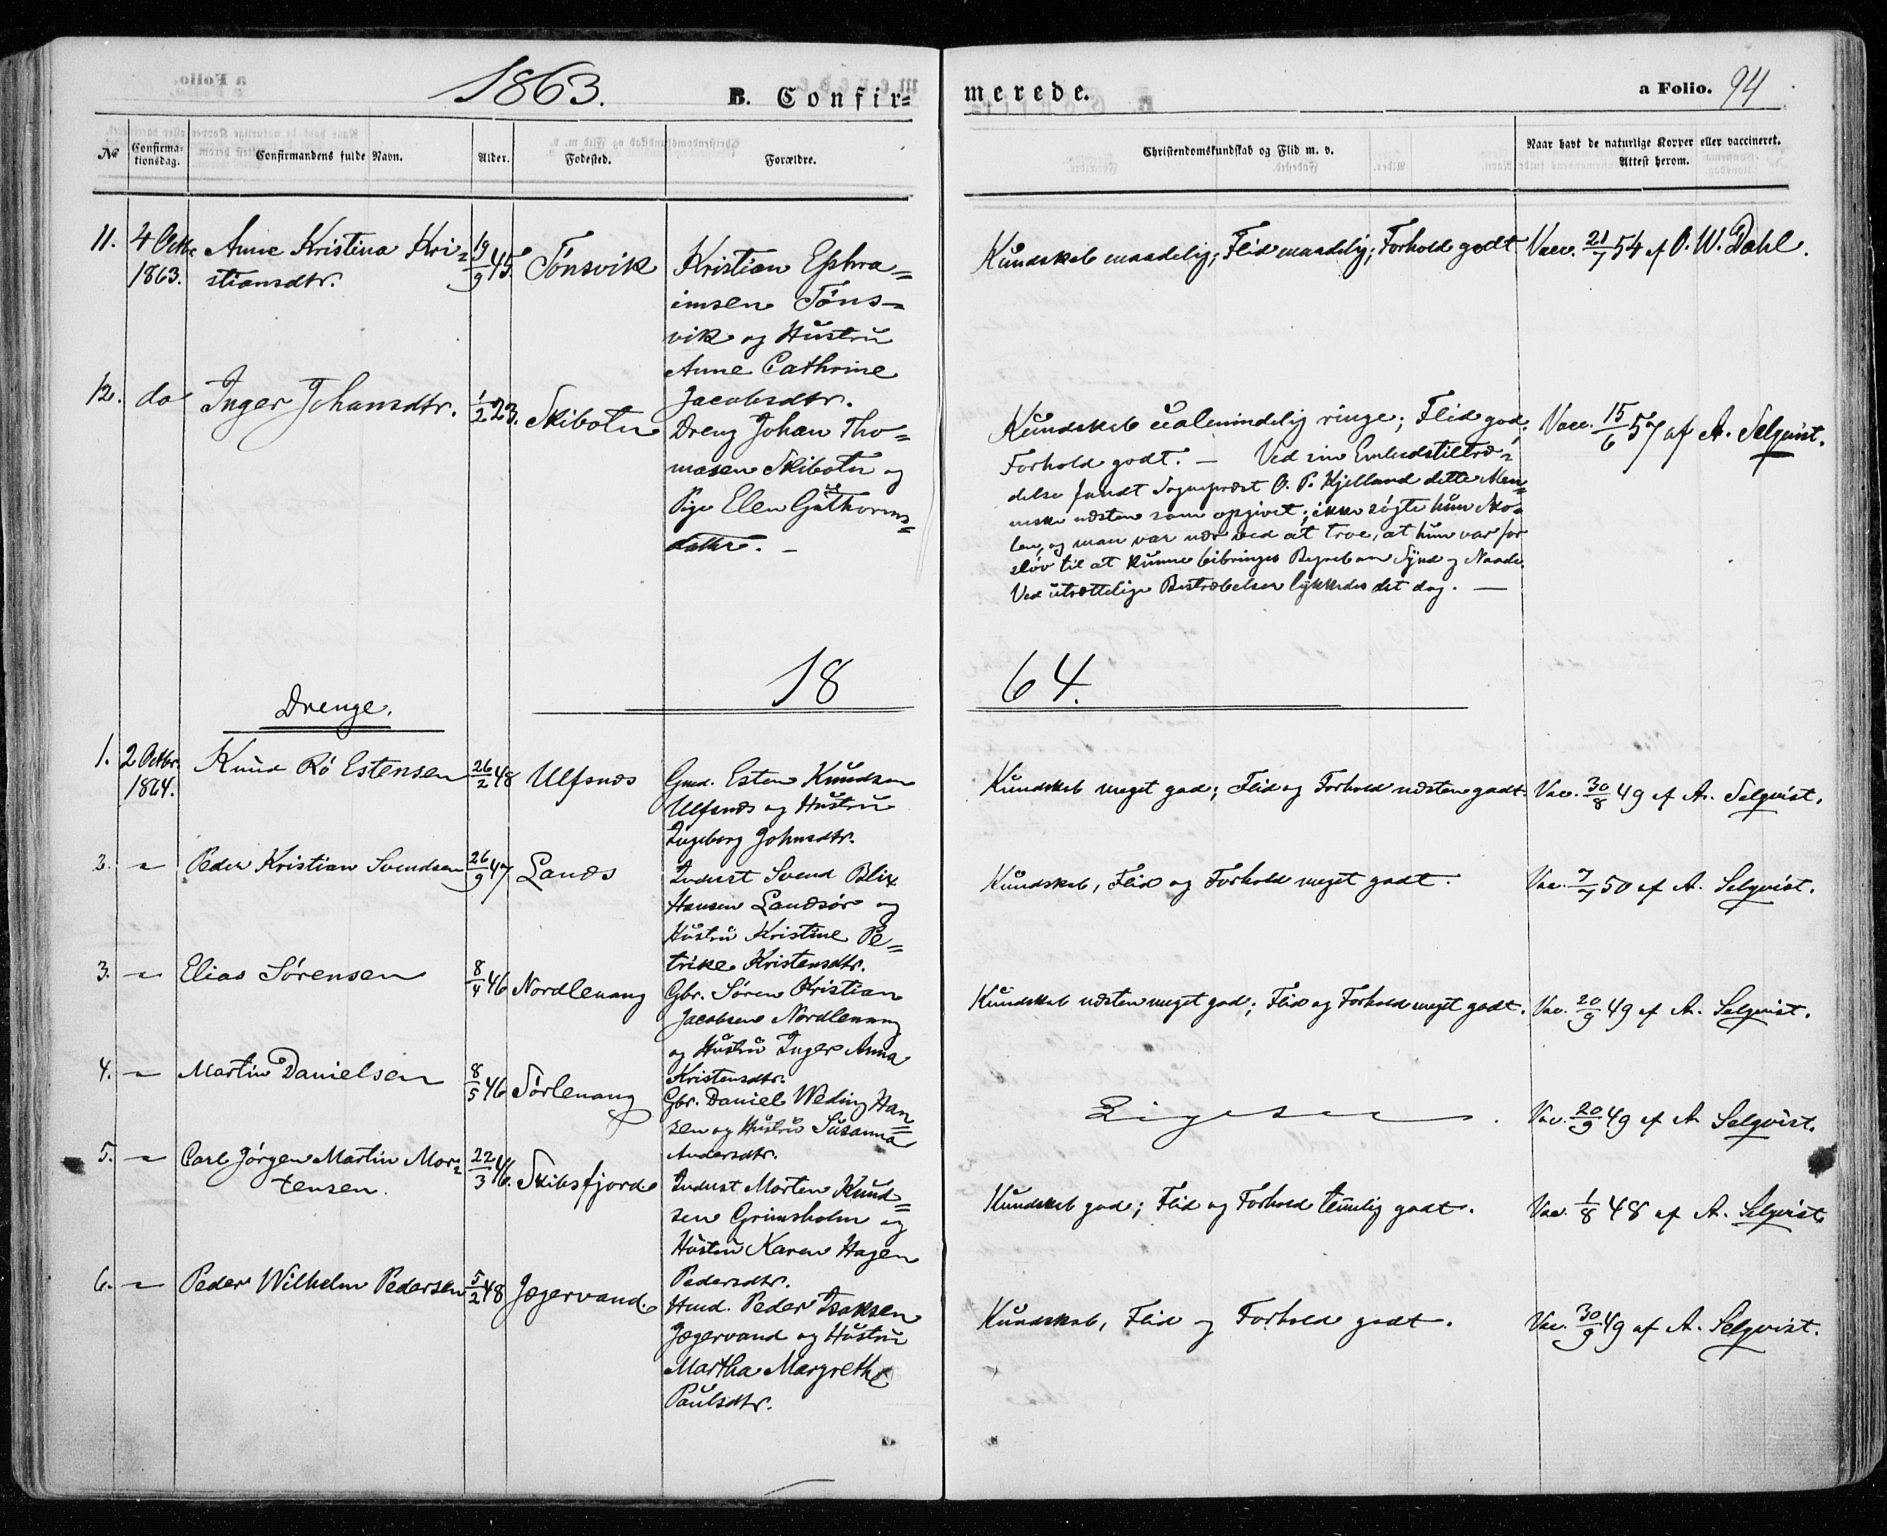 1863. B. Confir=
merede. a Folio. 94
No Confirma-tionsdag. Confirmandens fulde Navn. Alder. Fødested. Forældre. Christendomskundskab og Flid m. v. Naar havt de naturlige Kopper eller vaccineret. Attest herom.
11. 4 Octbr 1863. Anne Kristina Kri=
stiansdtr.
19/9 45. Tönsvik
Kristian Ephra=
imsen Töns=
vik og Hustru
Anne Cathrine
Jacobsdtr.
Kundskab maadelig; Flid maadelig; Forhold godt
Vacc. 21/7 54 af O. W. Dahl.
12. do Inger Johansdtr. 1/2 23. Skibotn
Dreng Johan Tho=
masen Skibotn og
Pige Elen Guthorms=
datter. —
Kundskab ualmindelig ringe; Flid god;
Forhold godt. — Ved sin Embedstiltræ=
delse fandt Sognepræst O. P. Kjelland dette Men=
neske næsten som opgivet; ikke søgte hun Sko=
len, og man var nær ved at troe, at hun var for
sløv til at kunne bibringes Begreb om Synd og Naade.
Ved utrættelige Bestræbelser lykkedes det dog. —
Vacc. 15/6 57 af A. Selqvist.
1864.
Drenge.
1. 2 Octbr. 1864. Knud Rö Estensen 26/2 48 Ulfsnæs
Gmd. Esten Knudsen
Ulfsnæs og Hustru
Ingeborg Johnsdtr.
Kundskab meget god; Flid og Forhold næsten godt.
Vac. 30/8 49 af A. Selqvist.
2. " Peder Kristian Svendsen 26/9 47 Lanæs
Inderst Svend Blix
Hansen Landsör og
Hustru Kristine Pe=
trike Kristensdtr.
Kundskab, Flid og Forhold meget godt.
Vac. 7/7 50 af A. Selqvist.
3. " Elias Sörensen 8/4 46 Nordlenang
Gbr. Sören Kristian
Jacobsen Nordlenang
og Hustru Inger Anna
Kristensdtr.
Kundskab næsten meget god; Flid og Forhold meget godt.
Vac. 20/9 49 af A. Selqvist.
4. " Martin Danielsen 8/5 46 Sörlenang
Gbr. Daniel Weding Han
sen og Hustru Susanna
Andersdtr.
Ligesaa.
Vac. 20/9 49 af A. Selqvist.
5. " Carl Jörgen Martin Mor=
tensen.
22/3 46. Skibsfjord
Inderst Morten Knud=
sen Grimsholm og
Hustru Karen Hagen
Pedersdtr.
Kundskab god; Flid og Forhold temlig godt.
Vac. 1/8 48 af A. Selqvist
6. " Peder Wilhelm Pedersen 5/2 48 Jægervand.
Hmd. Peder Isaksen
Jægervand og Hustru
Martha Margrethe
Paulsdtr.
Kundskab, Flid og Forhold godt.
Vac. 30/9 49 af A. Selqvist.